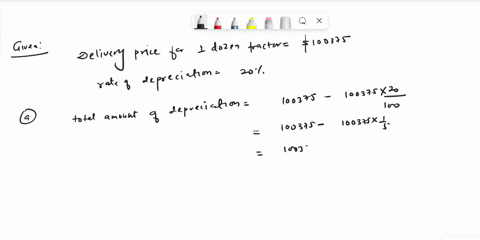 Given:
Delivery price for 1 dozen tractor = $100375
rate of depreciation = 20%.
(a) total amount of depreciation = 100375 - 100375 × 20/100
= 100375 - 100375 × 1/5
= 1003